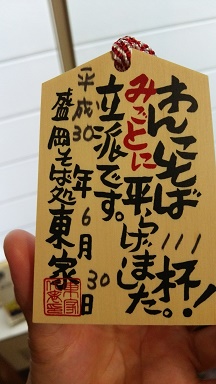 わんこそば111杯!
みごとに平らげました。
立派です。
平成30年6月30日
盛岡そば処東家